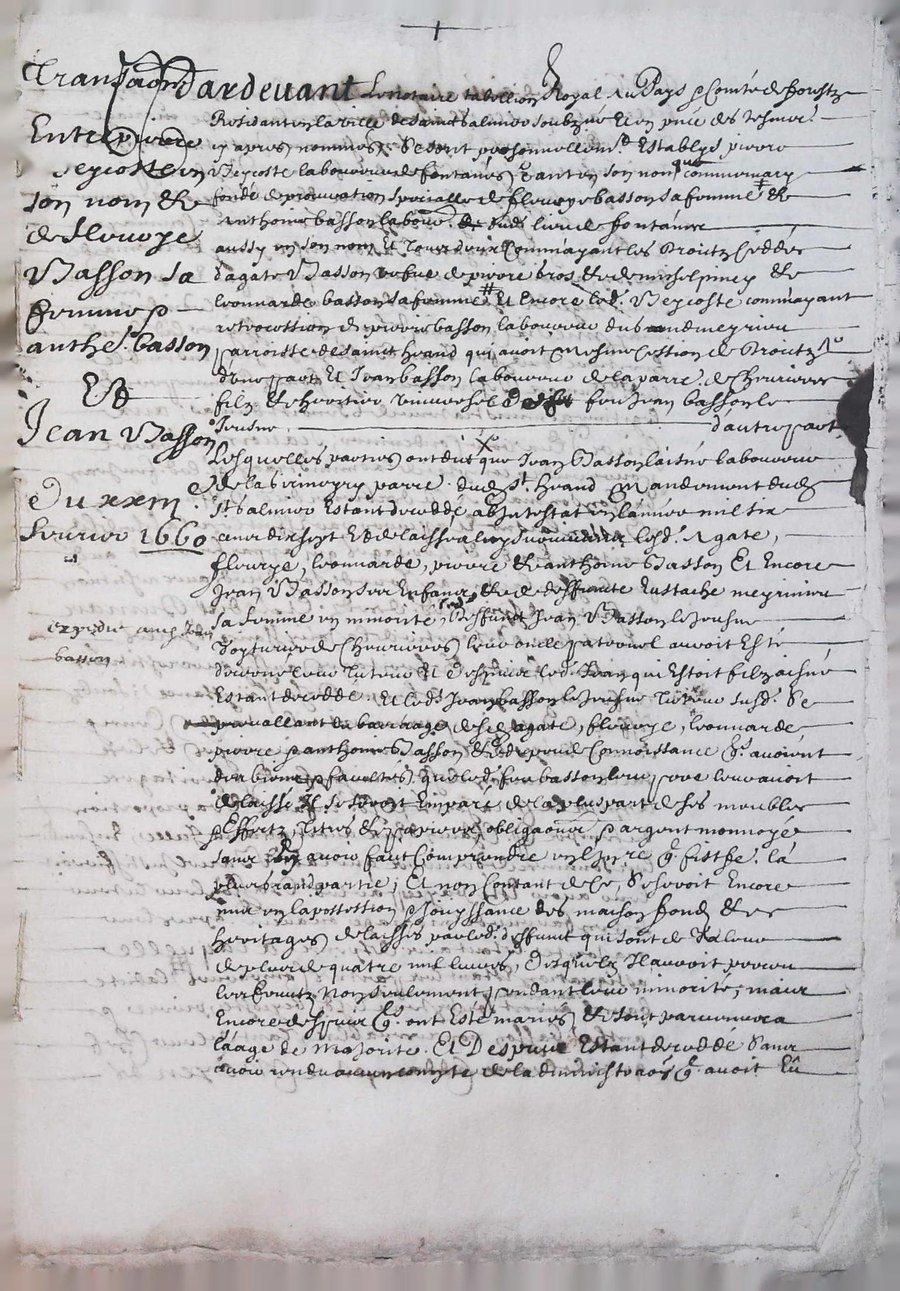 Transaon
Entre pierre
Veycoste en
son nom et
de flourye
Basson sa
femme p
anthe. basson
Et
Jean Basson
Du xxiii
feurier 1660
expedie aud Jean
basson
Pardeuant Le notaire tabellion Royal au Pays p Comté de forestz
Residant en la ville de sainct Galmier soubzné et en pnce des tesmoi
cy apres nommes Se sont personnellemt Establys pierre
Veycoste laboureur de fontanes tant en son nom que comme ayant
fondé de procuration speciallle de flourye basson sa femme &
Anthoine basson labour. du lieu de fontanes
aussy en son nom Et tous deux Comme ayant les droictz ceddés
d'agate Basson vefue de pierre bros & de michel piney &
leonnarde basson sa femme # Et Encore led. Veycoste comme ayant
retrocession de pierre basson laboureur
parroisse de sainct heand qui auoit mesme cession de droictz
d'une part Et Jean basson laboureur de la parre. de cheurieres
filz & heritier vniuersel feu Jean basson le
Jeusne d'autre part
Lesquelles parties ont dit que Jean Basson laisné laboureur
de la parre. dud. St. heand Mandement dud
St. Galmier Estant deceddé ab Intestat en l'année mil six
cens dix sept Et delaissé a luy suruiuans lesd. Agate,
flourye, leonnarde, pierre & anthoine Basson Et Encore
Jean Basson ses Enfans & de deffuncte Eustache meyrieu
sa femme en minorité, Deffunct Jean Basson le Jeusne
de Cheurieres leur oncle paternel auoit Esté
leur tuteur Et Despuis led. Jean qui Estoit filz aisné
Estant deceddé, Et led. Jean basson le Jeusne tuteur susd. Se
du bas eage desd. agate, flourye, leonnarde,
pierre p anthoine Basson & du peu de Connoissance qu. auoient
des biens p facultés que led. feu basson leur pere leur auoit
delaissé Il se seroit Emparé de la plus part de ses meubles
p Effectz, tiltres & papiers, obligaons p argent monnoyé
sans en auoir faict Comprendre en l'Inre. qu. fist he. la
plus grand partie, Et non Contant de Ce, Se seroit Encore
mis en la possession p Jouyssance des maison fondz & 
heritages delaisses par led. deffunct qui sont de Valeur
de plus de quatre mil liures, desquelz Il auoit perceu
les fruictz Non seulement pendant leur minorité, mais
Encore despuis qu. ont Esté maries & sont paruenus a
laage de majorité. Et Despuis Estant deceddé Sans
auoir rendu aucun compte de ladministraon qu. auoit Eu